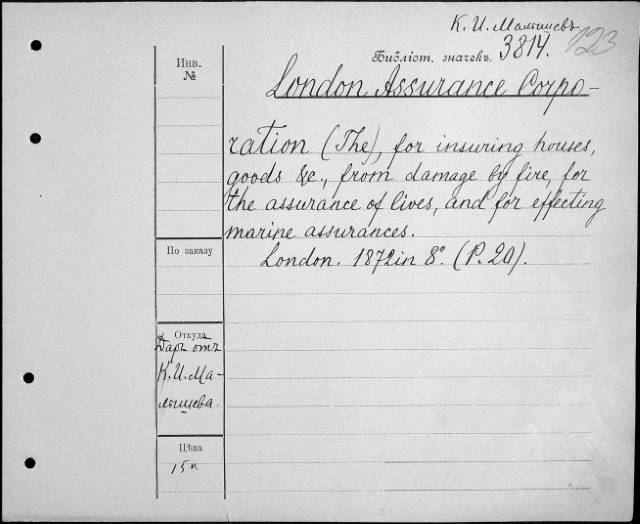 К. И. Малышевъ
123
Библіот. значекъ. 3814.
Инв.
№
London Assurance Corpo-
ration (The), for insuring houses,
goods &c., from damage by fire, for
the assurance of lives, and for effecting
marine assurances.
London. 1872 in 8°. (P. 20).
По заказу
Откуда
Даръ отъ
К. И. Ма-
лышева.
Цѣна
15к